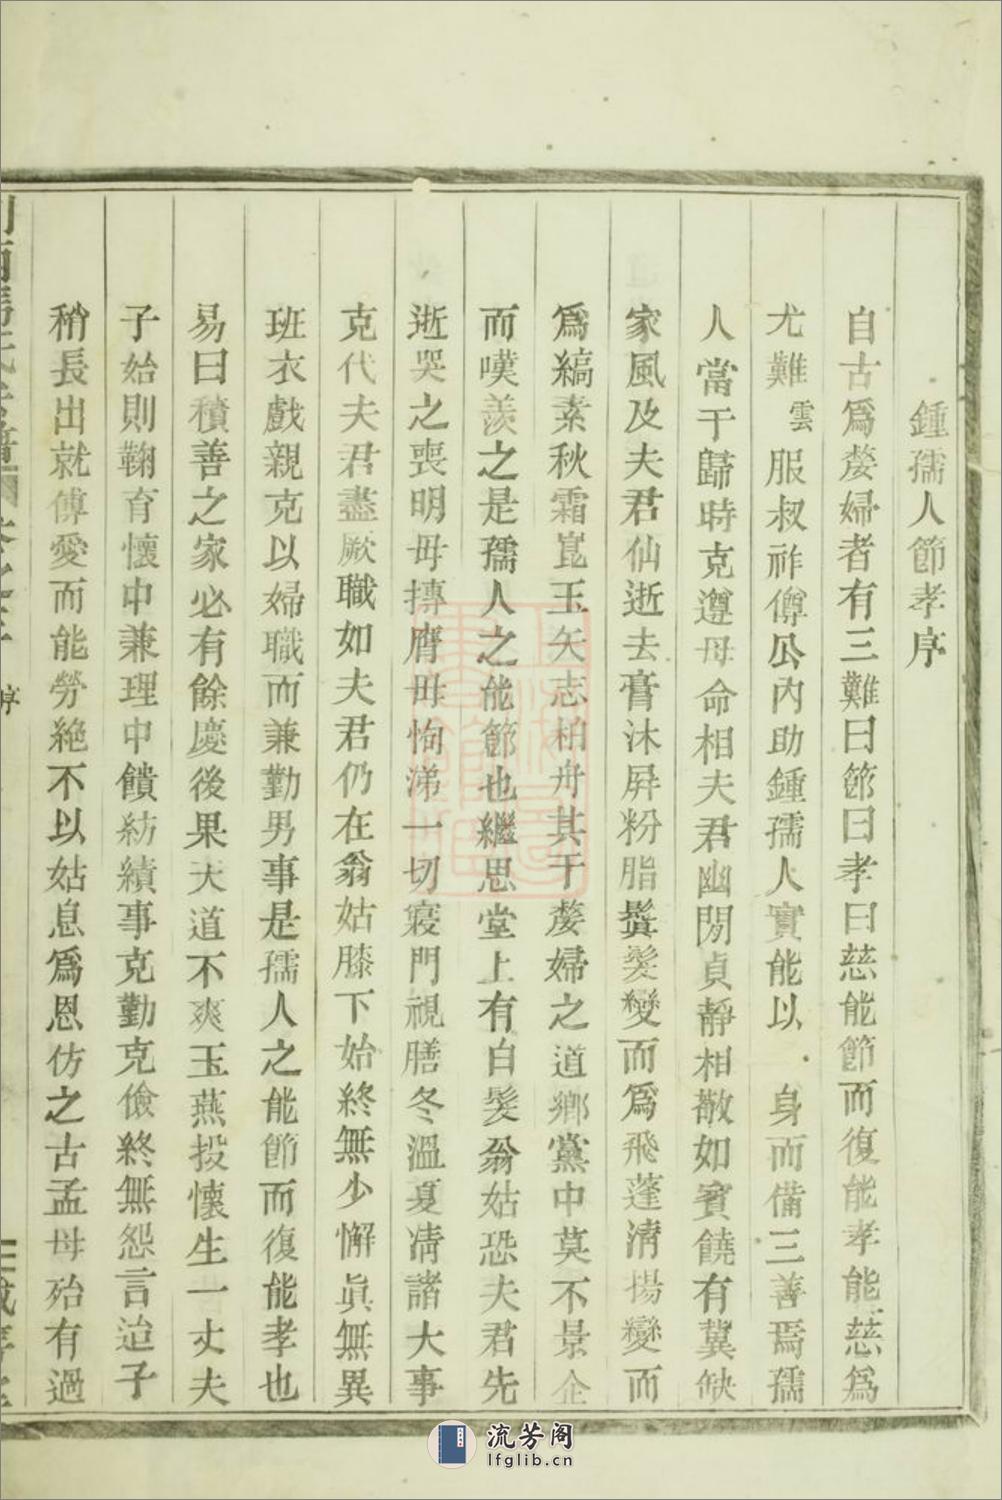 鍾孺人節孝序
自古爲嫠婦者有三難曰節曰孝曰慈能節而復能孝能慈爲
尤難雲服叔祚僔公內助鍾孺人實能以 身而備三善焉孺
人當于歸時克遵母命相夫君幽閒貞靜相敬如賓饒有冀缺
家風及夫君仙逝去膏沐屏粉脂鬒髮變而爲飛蓬淸揚變而
爲縞素秋霜崑玉矢志柏舟其于嫠婦之道鄉黨中莫不景企
而嘆羨之是孺人之能節也繼思堂上有白髮翁姑恐夫君先
逝哭之喪明毋摶膺毋恂涕一切寢門視膳冬溫夏凊諸大事
克代夫君盡厥職如夫君仍在翁姑膝下始終無少懈眞無異
班衣戲親克以婦職而兼勤男事是孺人之能節而復能孝也
易曰積善之家必有餘慶後果天道不爽玉燕投懷生一丈夫
子始則鞠育懷中兼理中饋紡績事克勤克儉終無怨言迨子
稍長出就傅愛而能勞絶不以姑息爲恩仿之古孟母殆有過
序
流芳阁
lfglib.cn